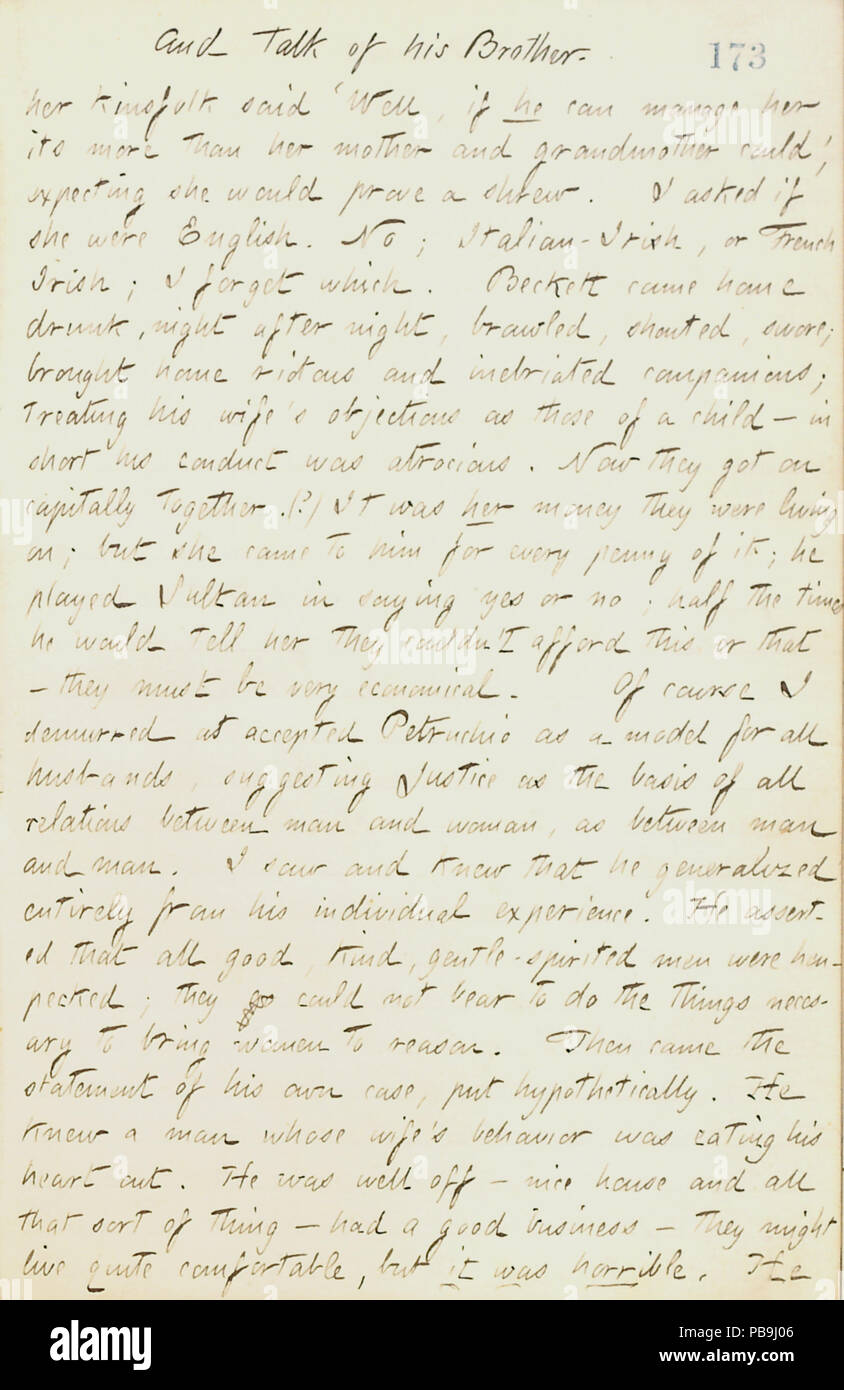 And Talk of his Brother.
173
her kinsfolk said 'Well, if he can manage her
its more than her mother and grandmother could',
expecting she would prove a shrew. I asked if
she were English. No; Italian-Irish, or French
Irish; I forget which. Beckett came home
drunk, night after night, brawled, shouted, swore;
brought home riotous and inebriated companions;
treating his wife's objections as those of a child — in
short his conduct was atrocious. Now they got on
capitally together.(?) It was her money they were living
on; but she came to him for every penny of it; he
played Sultan in saying yes or no; half the times
he would tell her they couldn't afford this or that
— they must be very economical. Of course I
demurred at accepted Petruchio as a model for all
husbands, suggesting Justice as the basis of all
relations between man and woman, as between man
and man. I saw and knew that he generalized
entirely from his individual experience. He assert-
ed that all good, kind, gentle-spirited men were hen-
pecked; they could not bear to do the things neces-
ary to bring women to reason. Then came the
statement of his own case, put hypothetically. He
knew a man whose wife's behavior was eating his
heart out. He was well off — nice house and all
that sort of thing — had a good business — they might
live quite comfortable, but it was horrible. He
alamy
Image ID: PB9J06
www.alamy.com